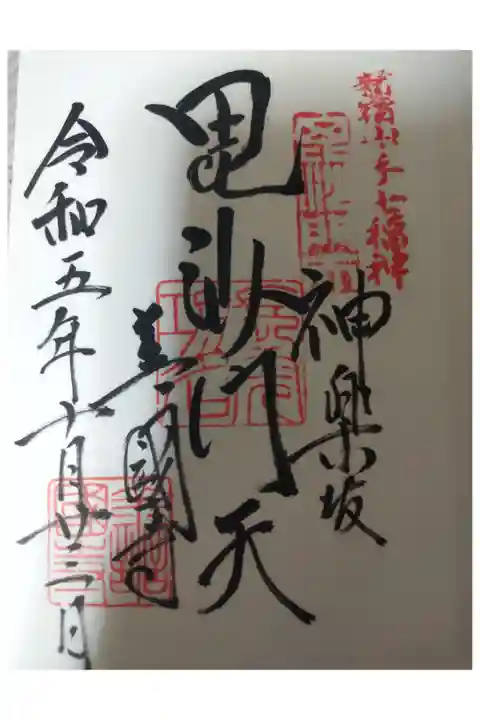 新宿山ノ手七福神
神楽坂
毘沙門天
善國寺
令和五年十月廿二日